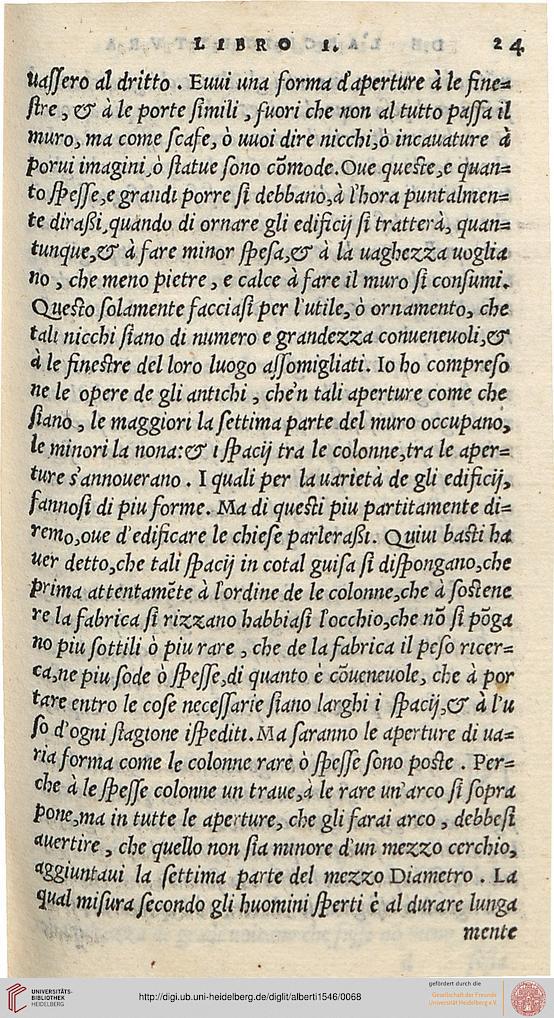 LIBRO I. 24
uaſſero al dritto . Euui una forma d'aperture à le fine=
ſtre , & à le porte ſimili , fuori che non al tutto paſſa il
muro, ma come ſcafe, ò uuoi dire nicchi,ò incauature à
porui imagini,ò ſtatue ſono cõmode.Oue queſte,e quan=
to ſpeſſe,e grandi porre ſi debbano,à l'hora puntalmen=
te diraßi,quando di ornare gli edificij ſi tratterà, quan=
tunque,& à fare minor ſpeſa,& à la uaghezza uoglia
no , che meno pietre , e calce à fare il muro ſi conſumi.
Queſto ſolamente facciaſi per l'utile, ò ornamento, che
tali nicchi ſiano di numero e grandezza conueneuoli,&
à le fineſtre del loro luogo aſſomigliati. Io ho compreſo
ne le opere de gli antichi , che'n tali aperture come che
ſiano , le maggiori la ſettima parte del muro occupano,
le minori la nona:& i ſpacij tra le colonne,tra le aper=
ture s'annouerano . I quali per la uarietà de gli edificij,
fannoſi di piu forme. Ma di queſti piu partitamente di=
remo,oue d'edificare le chieſe parleraßi. Quiui baſti ha
uer detto,che tali ſpacij in cotal guiſa ſi diſpongano,che
prima attentamẽte à l'ordine de le colonne,che à ſoſtene
re la fabrica ſi rizzano habbiaſi l'occhio,che nõ ſi põga
no piu ſottili ò piu rare , che de la fabrica il peſo ricer=
ca,ne piu ſode ò ſpeſſe,di quanto è cõueneuole, che à por
tare entro le coſe neceſſarie ſiano larghi i ſpacij,& à l'u
ſo d'ogni ſtagione iſpediti. Ma ſaranno le aperture di ua=
ria forma come le colonne rare ò ſpeſſe ſono poſte . Per=
che à le ſpeſſe colonne un traue,à le rare un'arco ſi ſopra
pone,ma in tutte le aperture, che gli farai arco , debbeſi
auertire , che quello non ſia minore d'un mezzo cerchio,
aggiuntaui la ſettima parte del mezzo Diametro . La
qual miſura ſecondo gli huomini ſperti è al durare lunga
mente
UNIVERSITÄTS-
BIBLIOTHEK
HEIDELBERG
http://digi.ub.uni-heidelberg.de/diglit/alberti1546/0068
gefördert durch die
Gesellschaft der Freunde
Universität Heidelberg e.V.